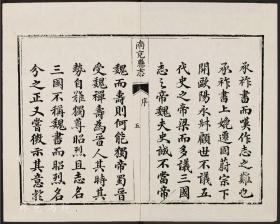 承祚書而嘆作志之難也
承祚書上媲遷固蔚宗下
開歐陽永叔顧世不議五
代史之帝梁而多議三國
志之帝魏夫史誠不當帝
南充縣志
序
五
魏而壽則何能獨帝蜀晉
受魏禪壽為晉人其時其
勢自難獨尊昭烈且志名
三國不稱魏書而昭烈名
分之正又嘗微示其意於